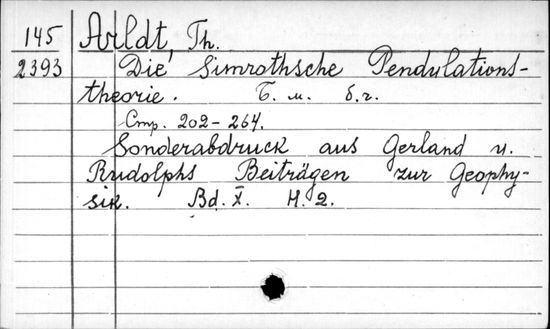 145 Arldt, Th.
2393 Die Simrothsche Pendulations-
theorie. Б. м. б. г.
Стр. 202-264.
Sonderabdruck aus Gerland u.
Rudolphs Beiträgen zur Geophy-
sik. Bd. X. H. 2.